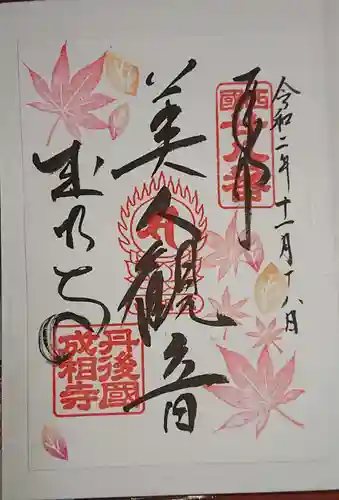 令和二年十一月十八日
奉拝
西國二十八番
美人観音
成相寺
丹後國成相寺